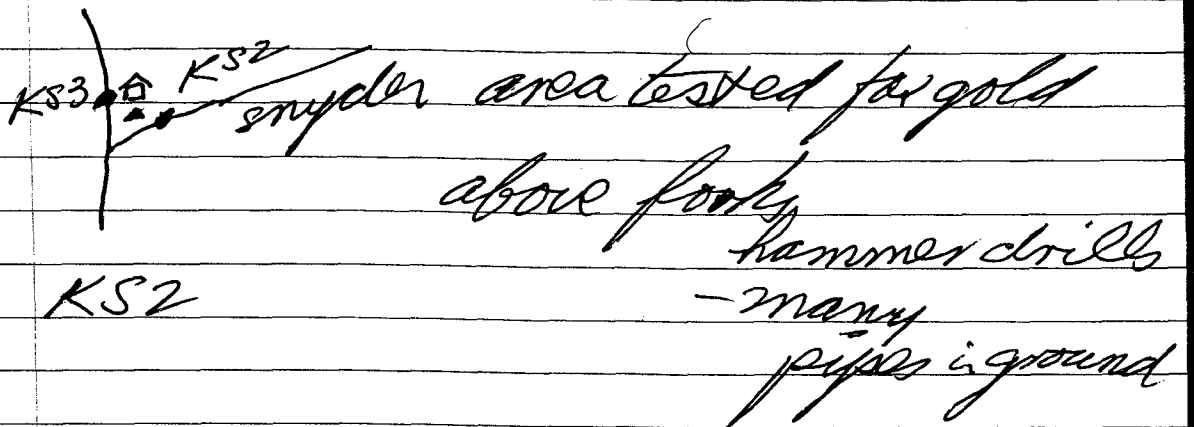 KS2
KS3 snyder area tested for gold
above fork,
hammer drills
KS2 - many
pipes in ground